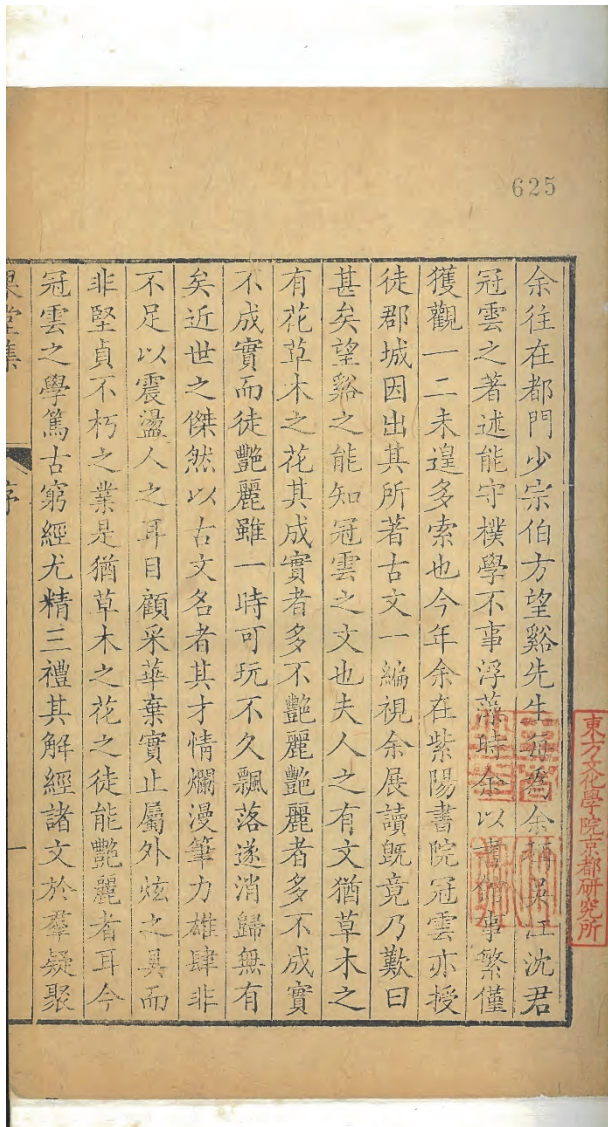 625
東方文化學院京都研究所
余往在都門少宗伯方望谿先生每爲余稱吳江沈君
冠雲之著述能守樸學不事浮藻時余以書事繁僅
獲觀一二未遑多索也今年余在紫陽書院冠雲亦授
徒郡城因出其所著古文一編視余展讀既竟乃歎曰
甚矣望谿之能知冠雲之文也夫人之有文猶草木之
有花草木之花其成實者多不艷麗艷麗者多不成實
不成實而徒艷麗雖一時可玩不久飄落遂消歸無有
矣近世之傑然以古文名者其才情爛漫筆力雄肆非
不足以震盪人之耳目顧采華棄實止屬外炫之具而
非堅貞不朽之業是猶草木之花之徒能艷麗者耳今
冠雲之學篤古窮經尤精三禮其解經諸文於羣疑聚
果堂集 序 一